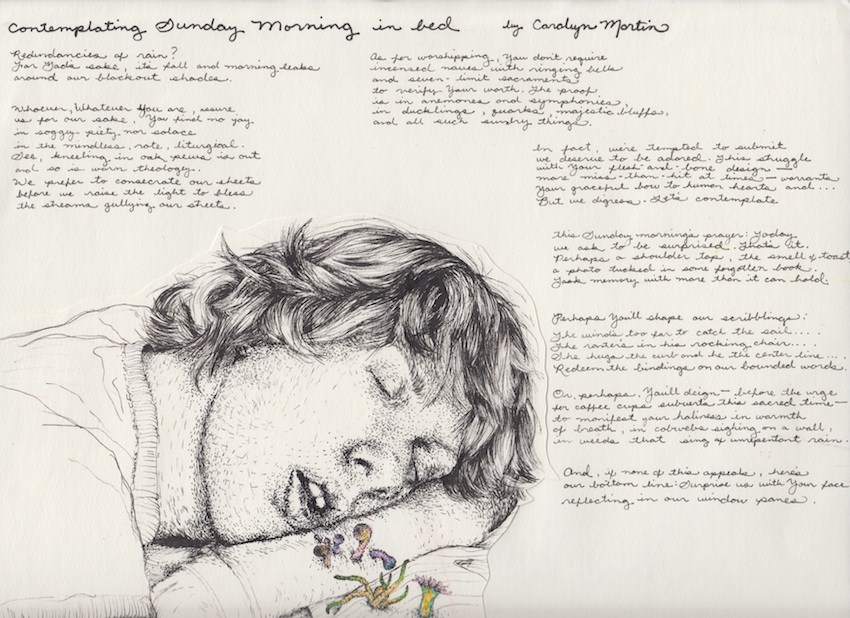 Contemplating Sunday Morning in bed by Carolyn Martin
Redundancies of rain?
For God's sake, it's fall and morning leaks
around our blackout shades.
Whoever, Whatever You are, assure
us for our sake, You find no joy
in soggy piety nor solace
in the mindless, rote, liturgical.
See, kneeling in oak pews is out
and so is worn theology.
We prefer to consecrate our sheets
before we raise the light to bless
the streams gullying our streets.
As for worshipping, You don't require
incensed naves with ringing bells
and seven-limit sacraments
to verify Your worth. The proof
is in anemones and symphonies,
in ducklings, quarks, majestic bluffs,
and all such sundry things.
In fact, we're tempted to submit
we deserve to be adored. This struggle
with Your flesh-and-bone design—
more miss-than-hit at times—warrants
Your graceful bow to human hearts and...
But we digress. Let's contemplate
this Sunday morning's prayer: Today
we ask to be surprised. That's it.
Perhaps a shoulder tap, the smell of toast
a photo tucked in some forgotten book.
Task memory with more than it can hold.
Perhaps You'll shape our scribblings:
The wind's too far to catch the sail....
The ranter's in his rocking chair....
She hugs the curb and he the center line....
Redeem the bindings on our bounded words.
Or, perhaps, You'll deign—before the urge
for coffee cups subverts this sacred time—
to manifest your holiness in warmth
of breath, in cobwebs sighing on a wall,
in weeds that sing of unrepentant rain.
And, if none of this appeals, here's
our bottom line: Surprise us with Your face
reflecting in our window panes.